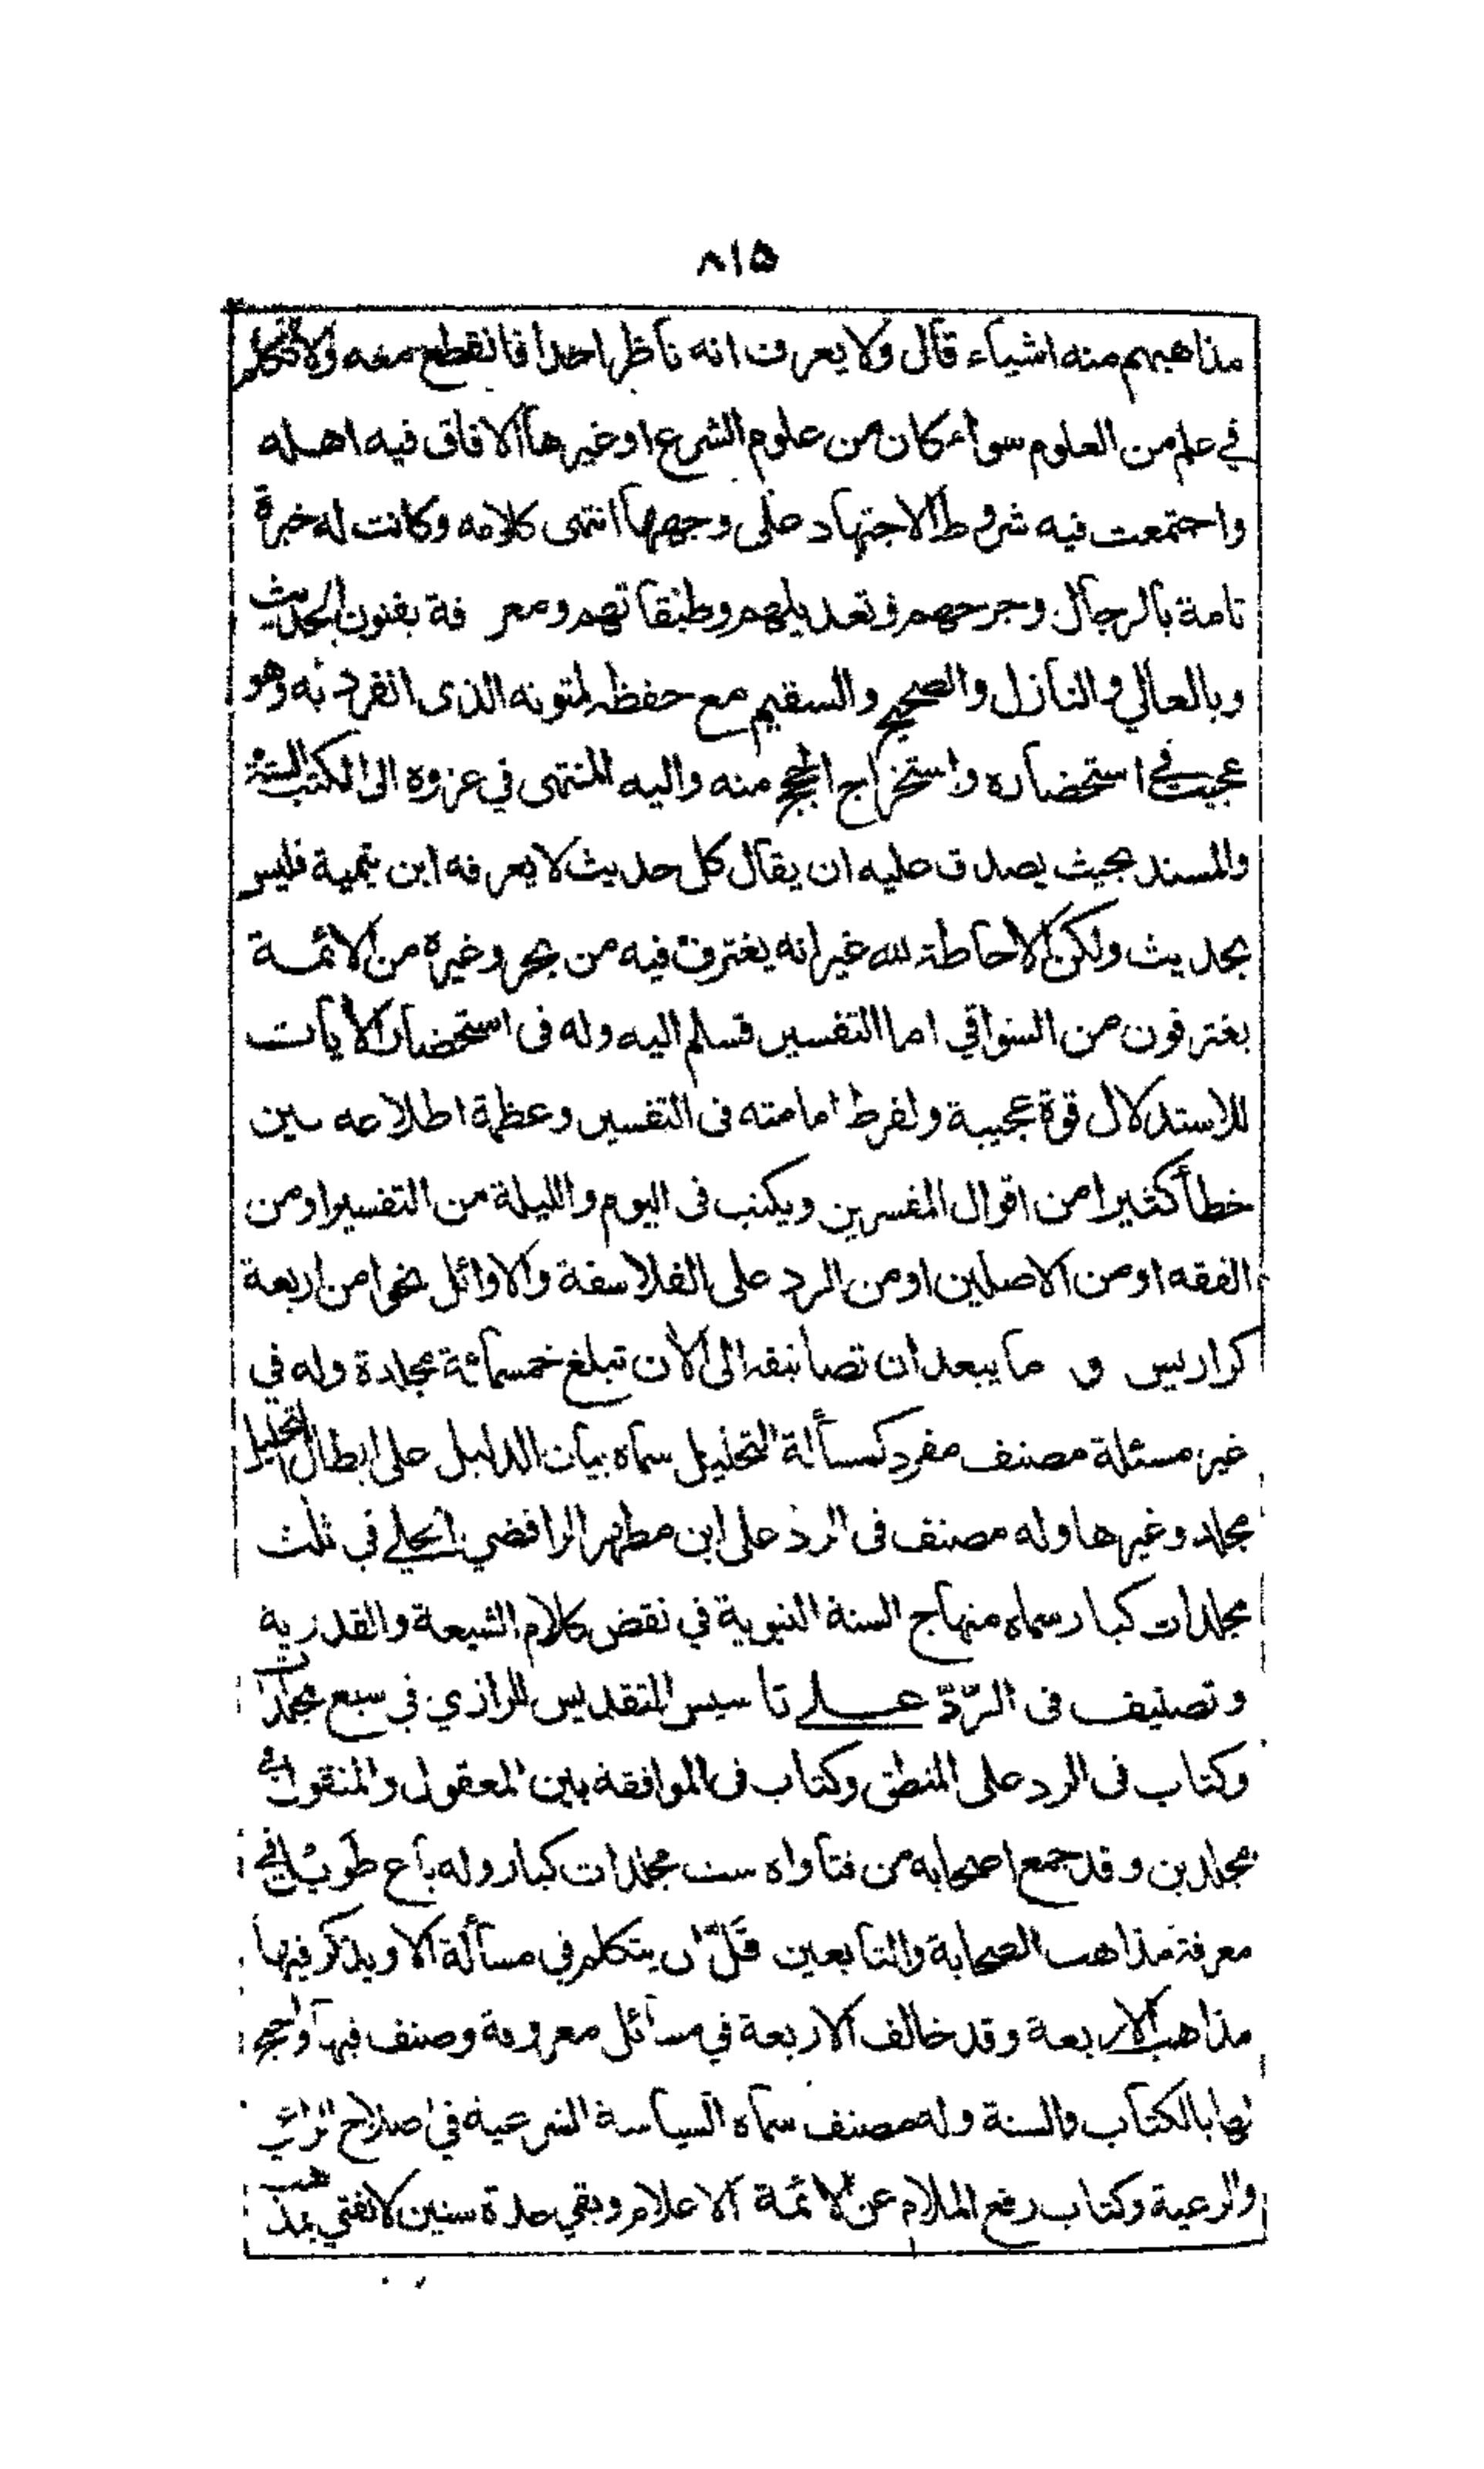 ۸۱۵
مذاهبهم منه اشياء قال ولا يعرف انه ناظر احدا فانقطع معه ولا تكلم
في علم من العلوم سواء كان من علوم الشرع او غيرها الا فاق فيه اهله
واجتمعت فيه شروط الاجتهاد على وجهها انتهى كلامه وكانت له خبرة
تامة بالرجال وجرحهم وتعديلهم وطبقاتهم ومعرفة بفنون الحديث
وبالعالي والنازل والصحيح والسقيم مع حفظه لمتونه الذى انفرد به وهو
عجيب في استحضاره واستخراج الحجج منه واليه المنتهى في عزوه الى الكتب الستة
والمسند بحيث يصدق عليه ان يقال كل حديث لا يعرفه ابن تيمية فليس
بحديث ولكن الاحاطة لله غير انه يغترف فيه من بحر وغيره من الائمة
يغترفون من السواقي اما التفسير فسلم اليه وله فى استحضار الأيات
للاستدلال قوة عجيبة ولفرط امامته فى التفسير وعظمة اطلاعه بين
خطأ كثيرا من اقوال المفسرين ويكتب فى اليوم والليلة من التفسير او من
الفقه او من الاصلين او من الرد على الفلاسفة والاوائل نحوا من اربعة
كراريس و ما يبعد ان تصانيفه الى الأن تبلغ خمسمائة مجلدة وله في
غير مسئلة مصنف مفرد كمسألة التحليل سماه بيان الدليل على ابطال التحليل
مجلد وغيرها وله مصنف فى الرد على ابن مطهر الرافضي الحلي في ثلث
مجلدات كبار سماه منهاج السنة النبوية في نقض كلام الشيعة والقدرية
وتصنيف فى الرّدّ على تاسيس التقديس للرازي في سبع مجلدات
وكتاب فى الرد على المنطق وكتاب فى الموافقة بين المعقول والمنقول في
مجلدين وقد جمع اصحابه من فتاواه ست مجلدات كبار وله باع طويل في
معرفة مذاهب الصحابة والتابعين قَلّ ان يتكلم في مسألة الا ويذكر فيها
مذاهب الاربعة وقد خالف الاربعة في مسائل معروفة وصنف فيها واحتج
لها بالكتاب والسنة وله مصنف سماه السياسة الشرعية في اصلاح الراعي
والرعية وكتاب رفع الملام عن الائمة الاعلام وبقي عدة سنين لا يفتي بمذهب